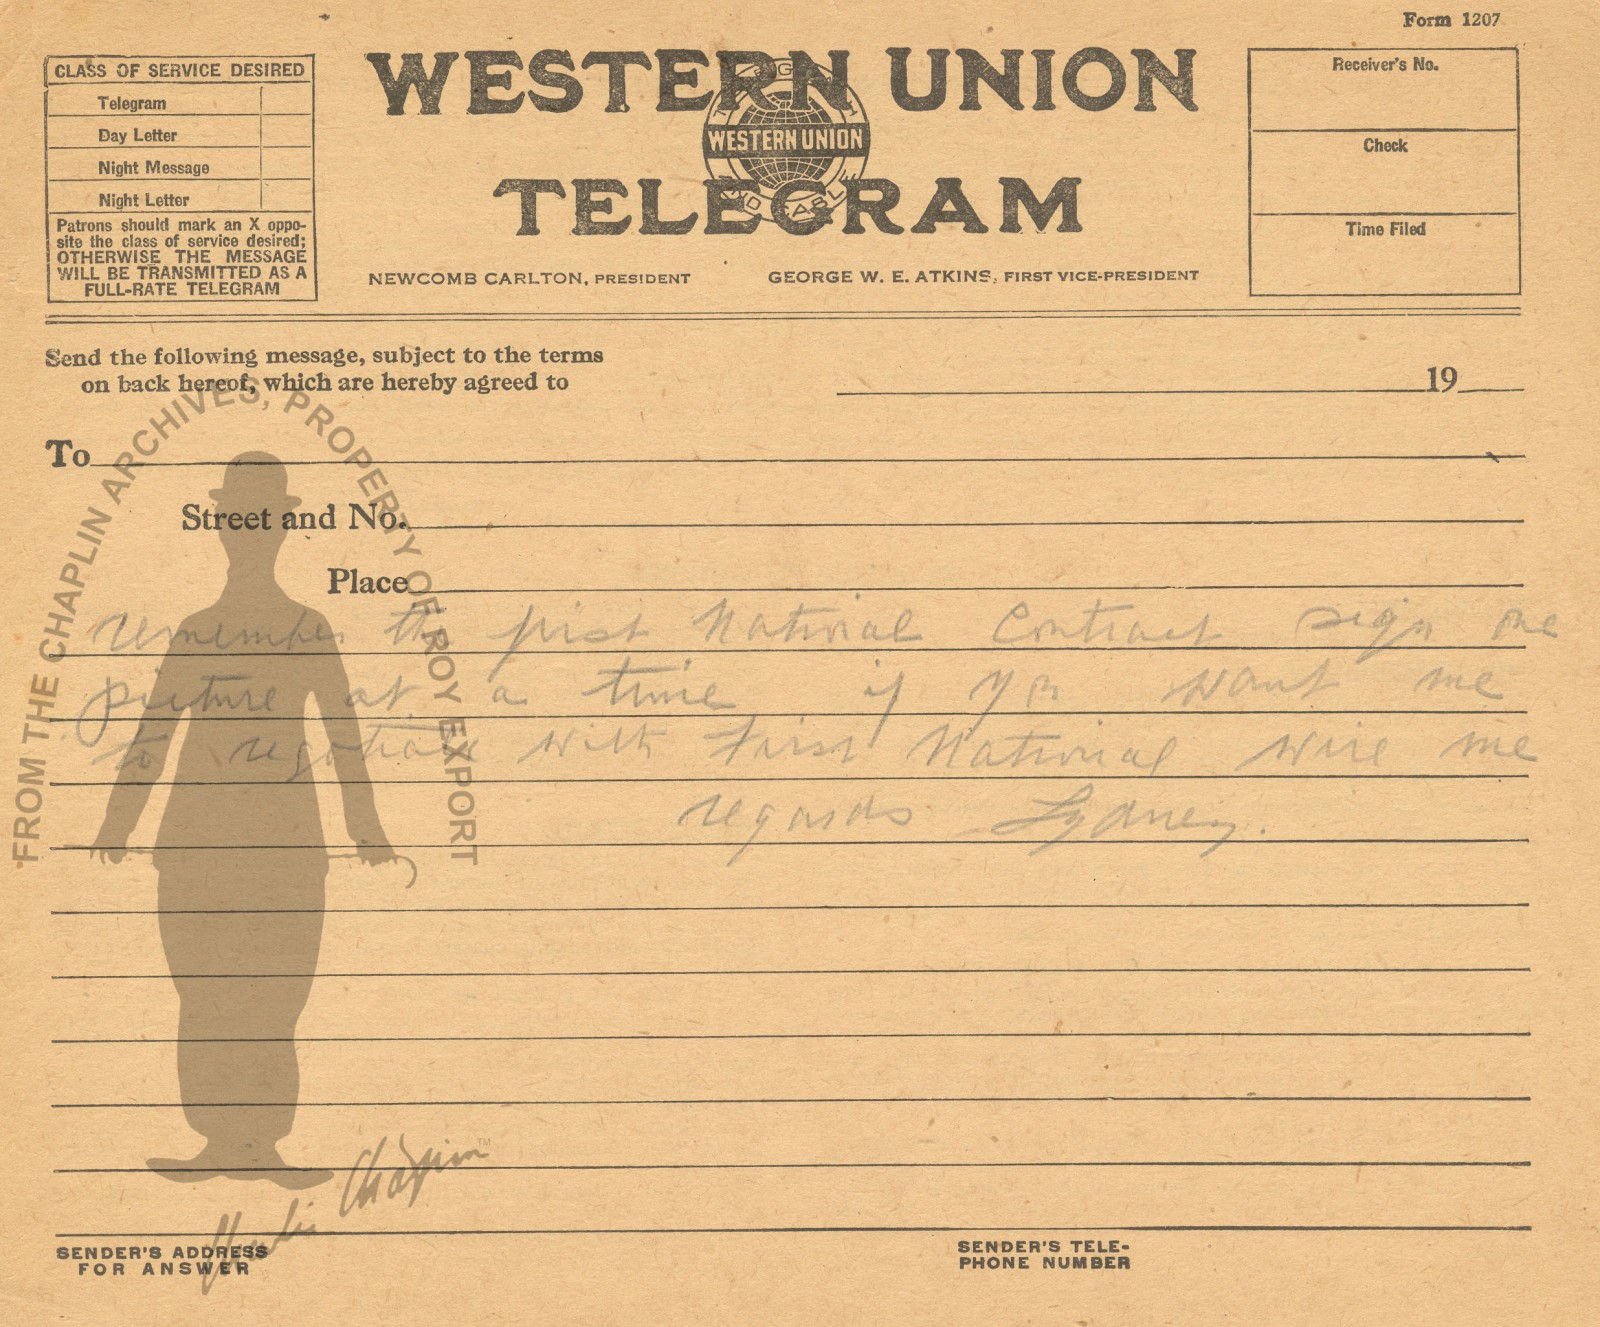 Form 1207
CLASS OF SERVICE DESIRED
Telegram
Day Letter
Night Message
Night Letter
Patrons should mark an X oppo-
site the class of service desired;
OTHERWISE THE MESSAGE
WILL BE TRANSMITTED AS A
FULL-RATE TELEGRAM
WESTERN UNION
TELEGRAPH
WESTERN UNION
AND CABLE
TELEGRAM
NEWCOMB CARLTON, PRESIDENT
GEORGE W. E. ATKINS, FIRST VICE-PRESIDENT
Receiver's No.
Check
Time Filed
Send the following message, subject to the terms
on back hereof, which are hereby agreed to
19
To
Street and No.
Place
remember the first National Contract sign one
picture at a time if you want me
to negotiate with First National wire me
regards Sydney.
FROM THE CHAPLIN ARCHIVES, PROPERTY OF ROY EXPORT
Charlie Chaplin™
SENDER'S ADDRESS
FOR ANSWER
SENDER'S TELE-
PHONE NUMBER